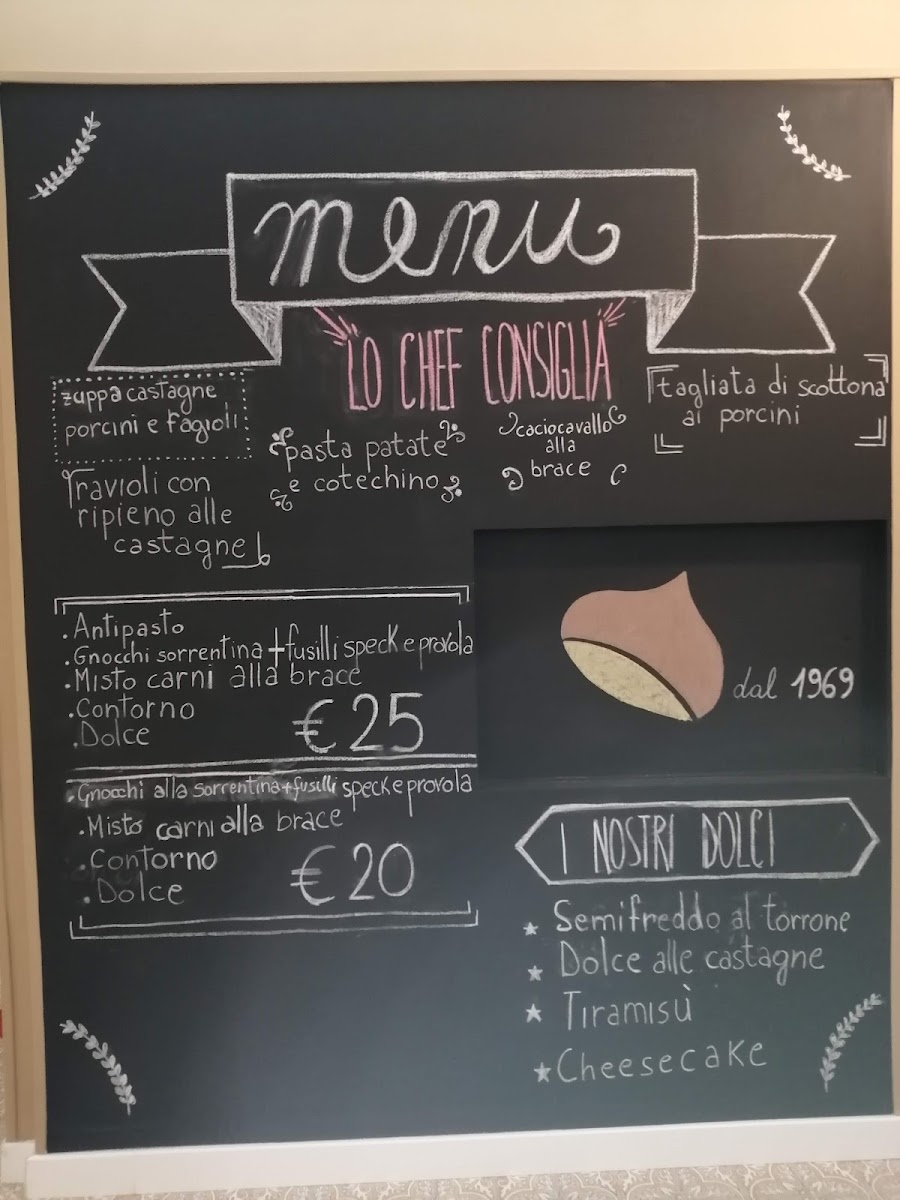 menu
LO CHEF CONSIGLIA
zuppa castagne
porcini e fagioli
ravioli con
ripieno alle
castagne
pasta patate
e cotechino
caciocavallo
alla
brace
tagliata di scottona
ai porcini
.Antipasto
.Gnocchi sorrentina + fusilli speck e provola
.Misto carni alla brace
.Contorno
.Dolce
€25
.Gnocchi alla sorrentina + fusilli speck e provola
.Misto carni alla brace
.Contorno
.Dolce
€20
dal 1969
I NOSTRI DOLCI
★ Semifreddo al torrone
★ Dolce alle castagne
★ Tiramisù
★ Cheesecake